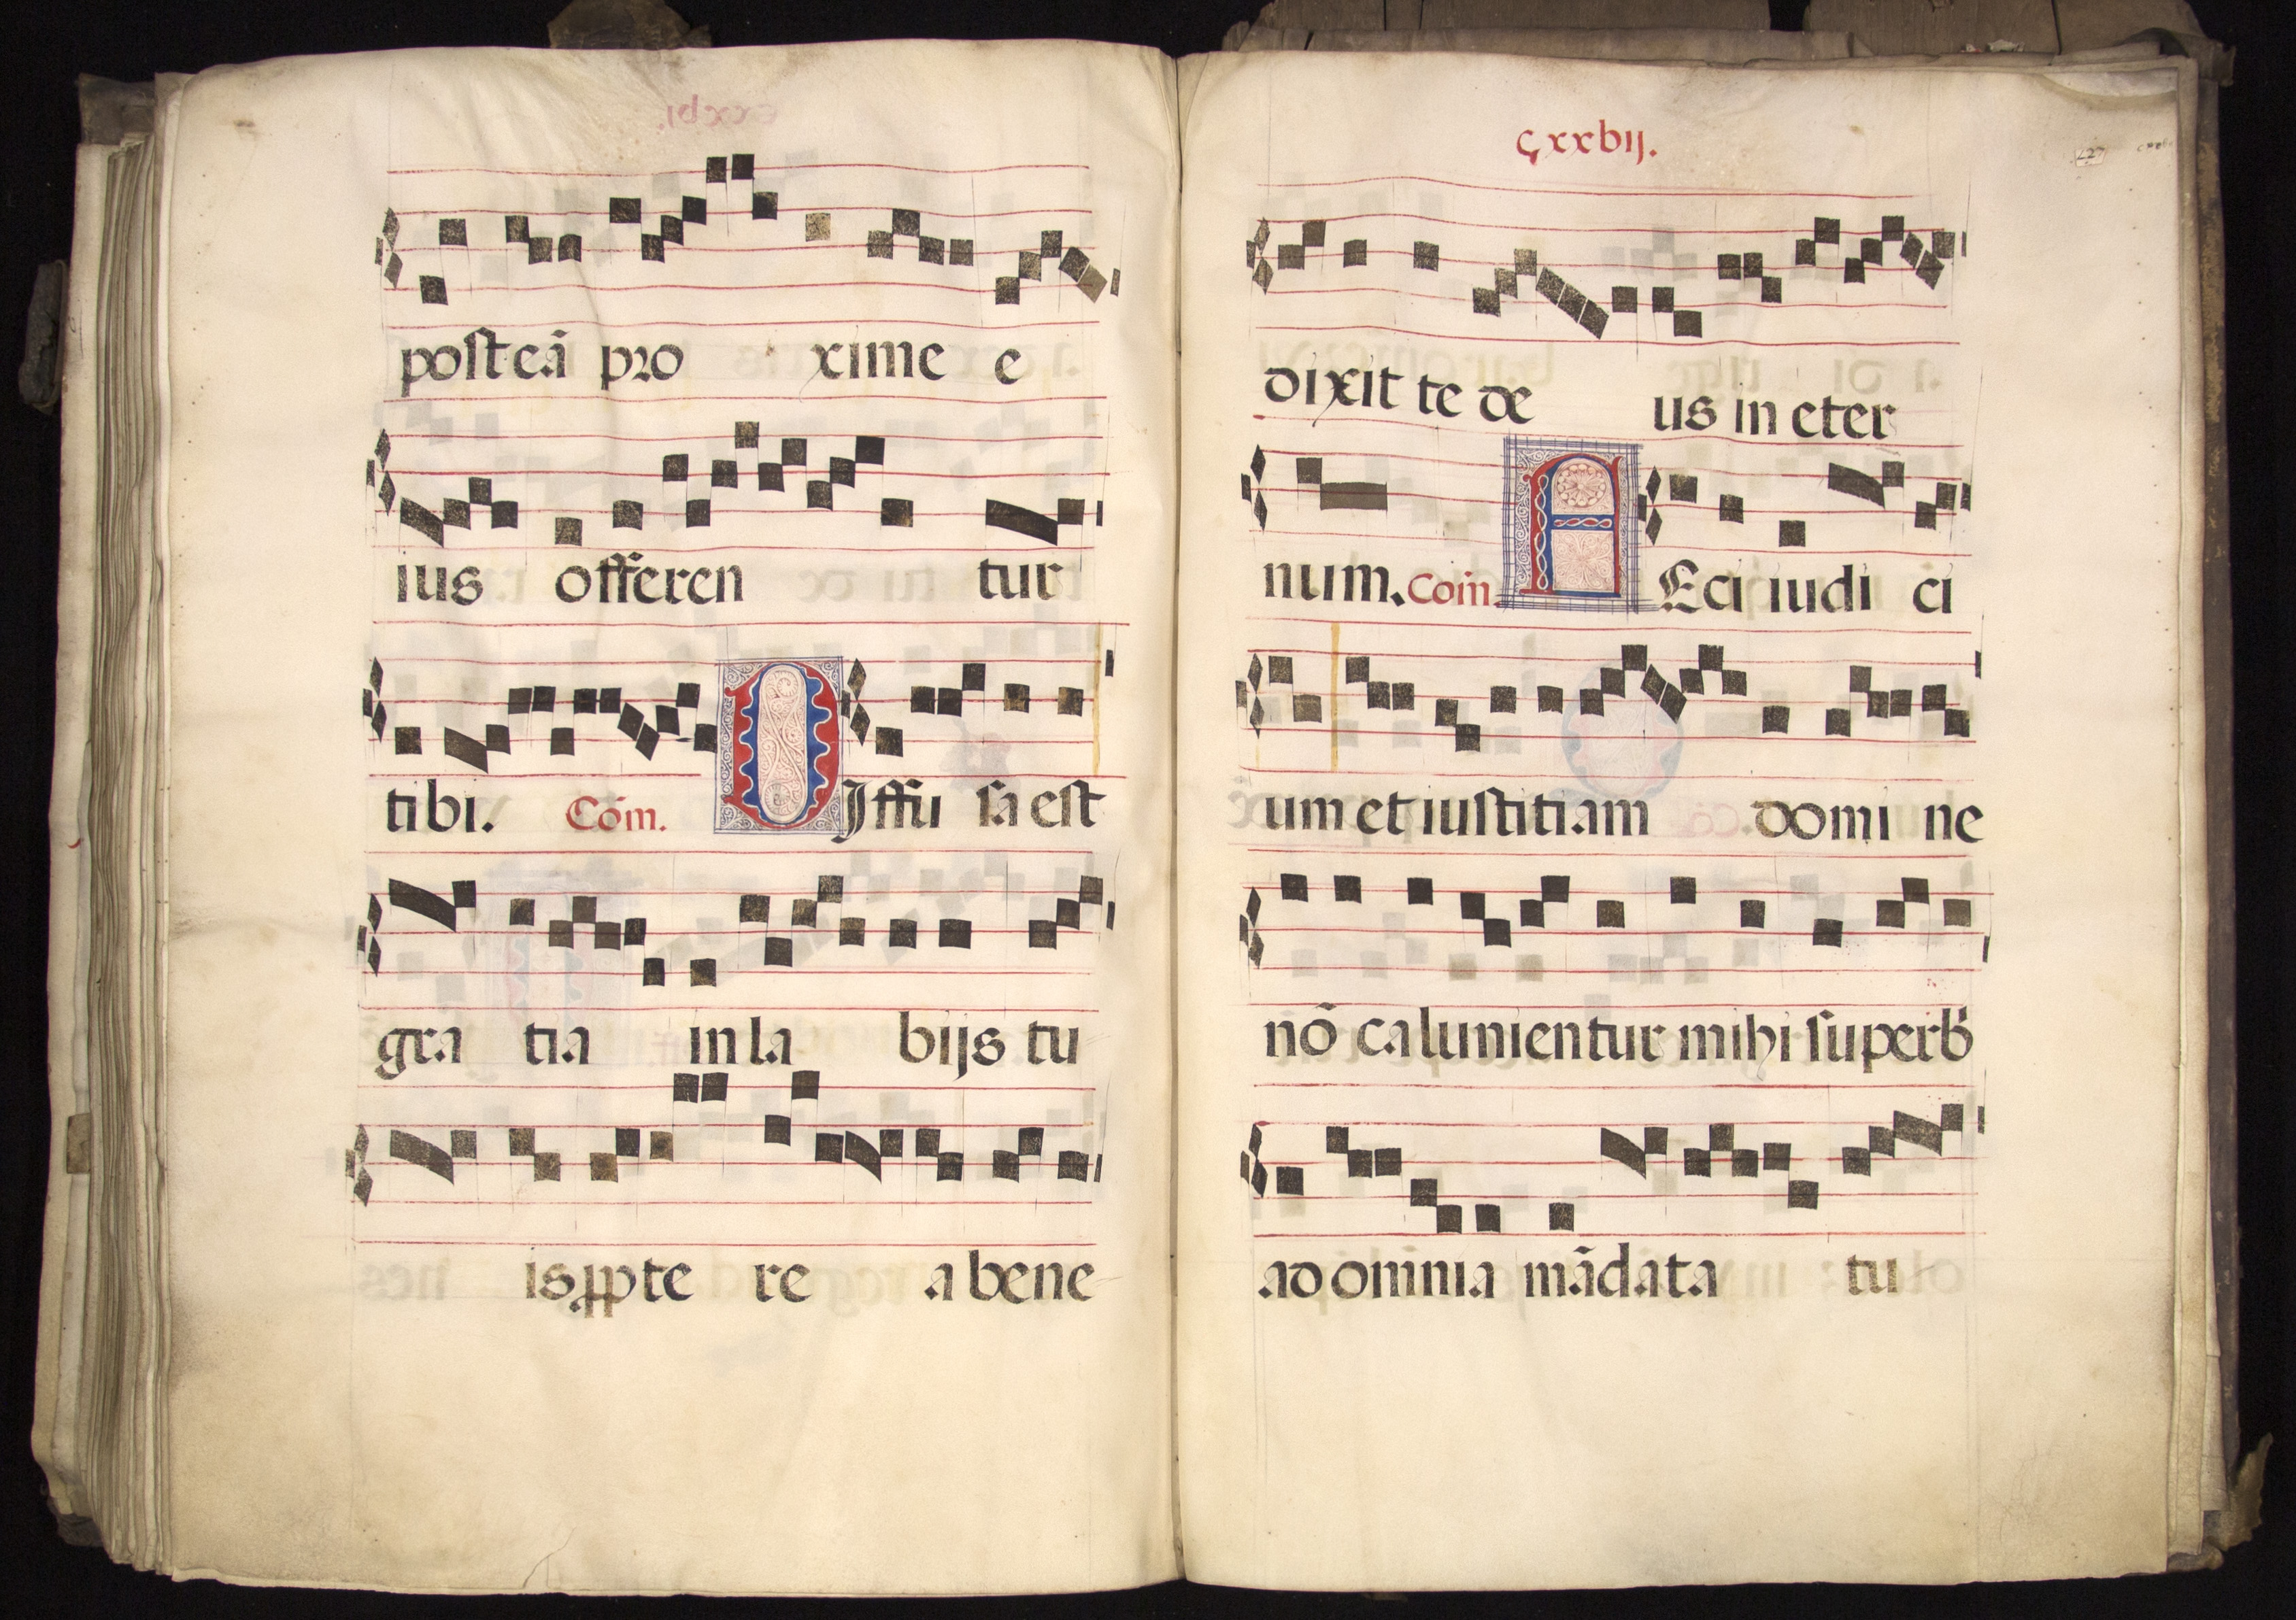 posteā pro xime e
ius offeren tur
tibi. Com̄. DIffu sa est
gra tia in la bijs tu
is ꝓpte re a bene
cxxbij.
127
dixit te de us in eter
num. Com̄. FEci iudi ci
um et iustitiam domi ne
nō calunientur mihi superb̄
ad omnia mādata tu